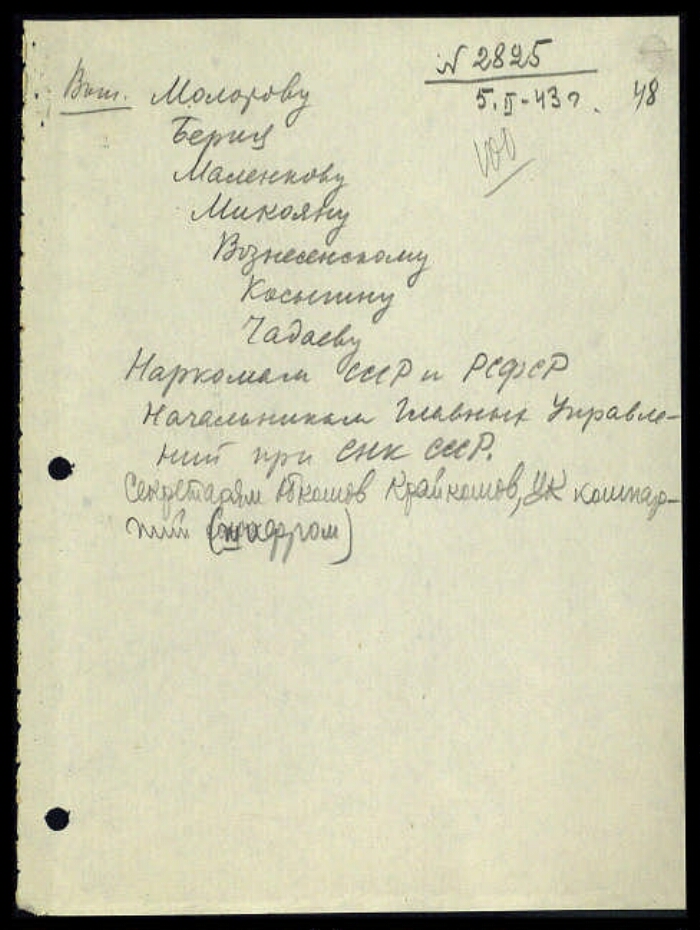 № 2825
5.II-43г. 48
Вып. Молотову
Берия
Маленкову
Микояну
Вознесенскому
Косыгину
Чадаеву
Наркомам СССР и РСФСР
Начальникам Главных Управле-
ний при СНК СССР.
Секретарям Обкомов Крайкомов, ЦК компар-
тий (шифром)